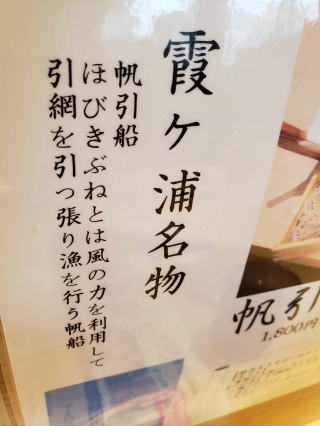 霞ヶ浦名物
帆引船
ほびきぶねとは風の力を利用して
引網を引っ張り漁を行う帆船
帆引
1,800円